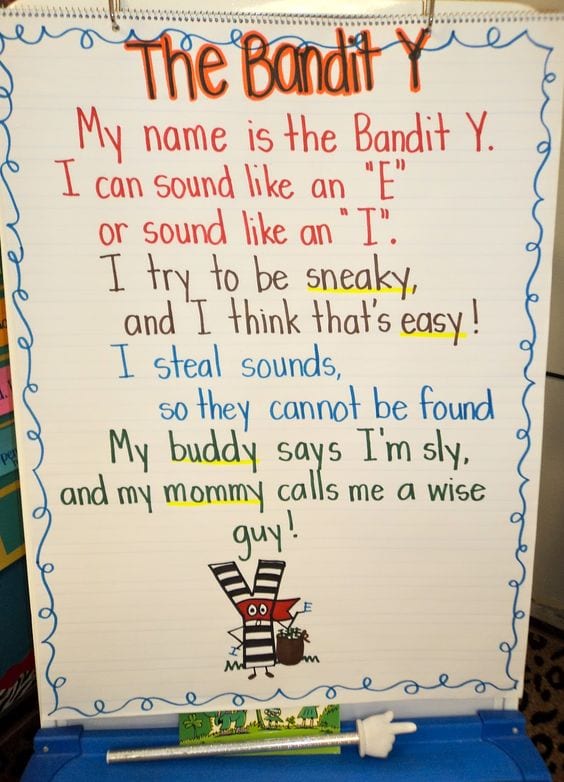 The Bandit Y
My name is the Bandit Y.
I can sound like an "E"
or sound like an "I".
I try to be sneaky,
and I think that's easy!
I steal sounds,
so they cannot be found
My buddy says I'm sly,
and my mommy calls me a wise
guy!
E
I